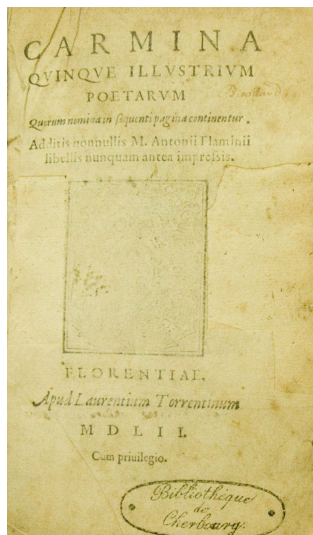 CARMINA
QVINQVE ILLVSTRIVM
POETARVM
Quorum nomina in sequenti pagina continentur.
Additis nonnullis M. Antonii Flaminii
libellis nunquam antea impressis.
FLORENTIAE.
Apud Laurentium Torrentinum
MDLII.
Cum priuilegio.
Bibliothéque
de
Cherbourg.